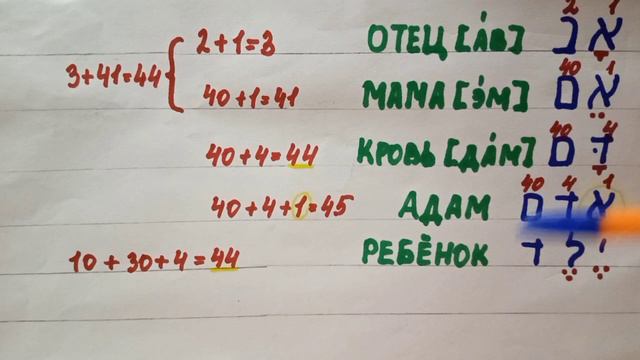 2 1
2+1=3 ОТЕЦ [А́В] אָב
3+41=44
40 1
40+1=41 МАМА [Э́М] אֵם
40 4
40+4=44 КРОВЬ [ДА́М] דָּם
40 4 1
40+4+1=45 АДАМ אדם
10+30+4=44 РЕБЁНОК יֶלֶד